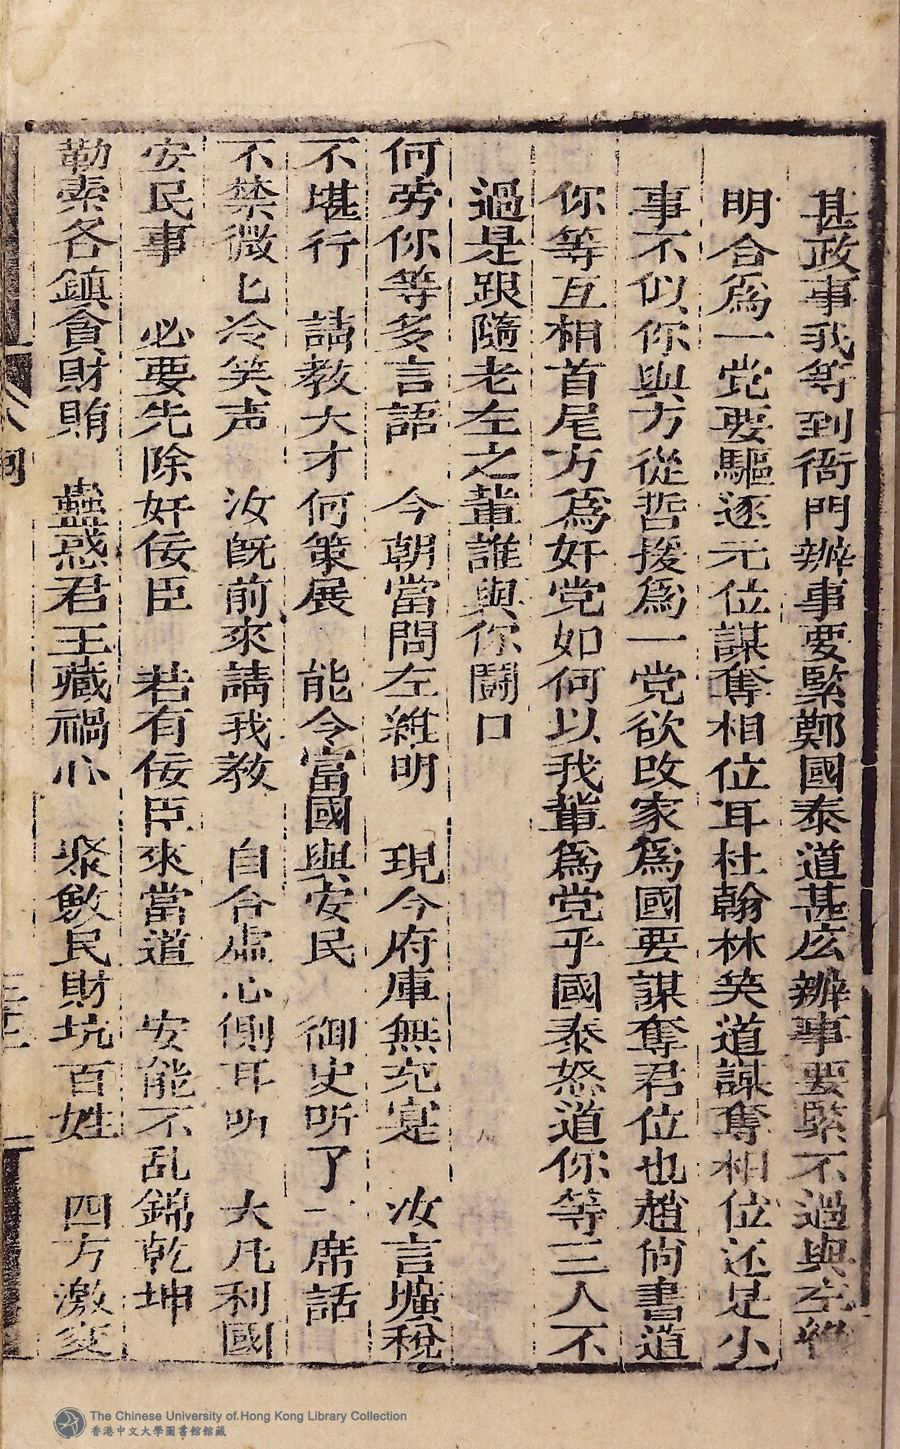 甚政事我等到衙門辦事要緊鄭國泰道甚庅辦事要緊不過與左維
明合為一党要驅逐元位謀奪相位耳杜翰林笑道謀奪相位还是小
事不似你與方從哲援為一党欲改家為國要謀奪君位也趙尚書道
你等互相首尾方為奸党如何以我輩為党乎國泰怒道你等三人不
過是跟隨老左之輩誰與你鬪口
何劳你等多言語 今朝當問左維明 現今府庫無充寔 汝言壙稅
不堪行 請教大才何策展 能令富國與安民 御史听了一席話
不禁微匕冷笑声 汝既前來請我教 自合虛心側耳听 大凡利國
安民事 必要先除奸佞臣 若有佞臣來當道 安能不乱錦乾坤
勒索各鎮貪財賄 蠱惑君王藏禍心 聚斂民財坑百姓 四方激变
The Chinese University of Hong Kong Library Collection
香港中文大學圖書館館藏